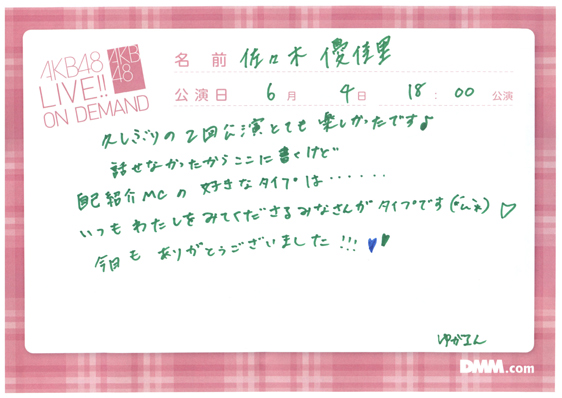 AKB48
LIVE!!
ON DEMAND
AKB
48
名前 佐々木 優佳里
公演日 6月 4日 18:00 公演
久しぶりの2回公演とても楽しかったです♪
話せなかったからここに書くけど
自己紹介MCの 好きなタイプは‥‥‥
いつもわたしをみてくださるみなさんがタイプです ♡
今日も ありがとうございました!!!
ゆかるん
DMM.com